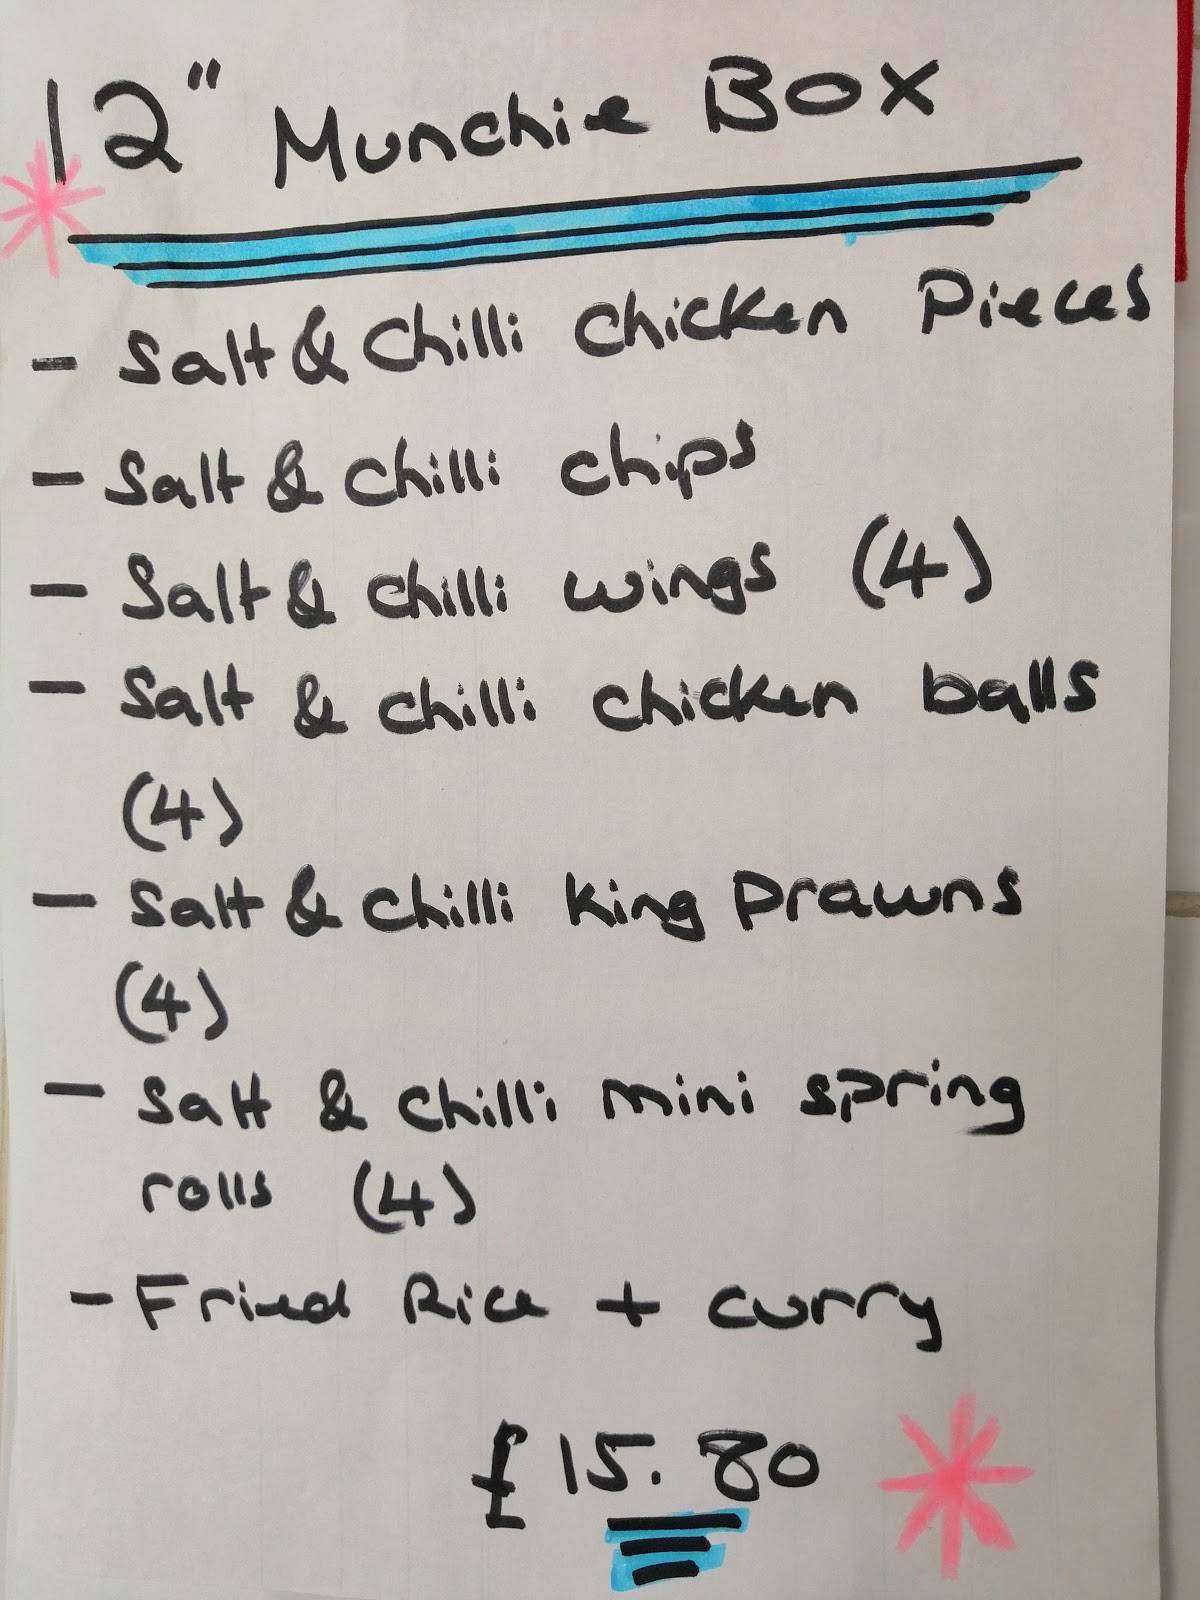 12" Munchie Box
- Salt & Chilli Chicken Pieces
- Salt & chilli chips
- Salt & chilli wings (4)
- Salt & chilli chicken balls
(4)
- Salt & chilli king prawns
(4)
- Salt & chilli mini spring
rolls (4)
- Fried Rice + curry
£15.80